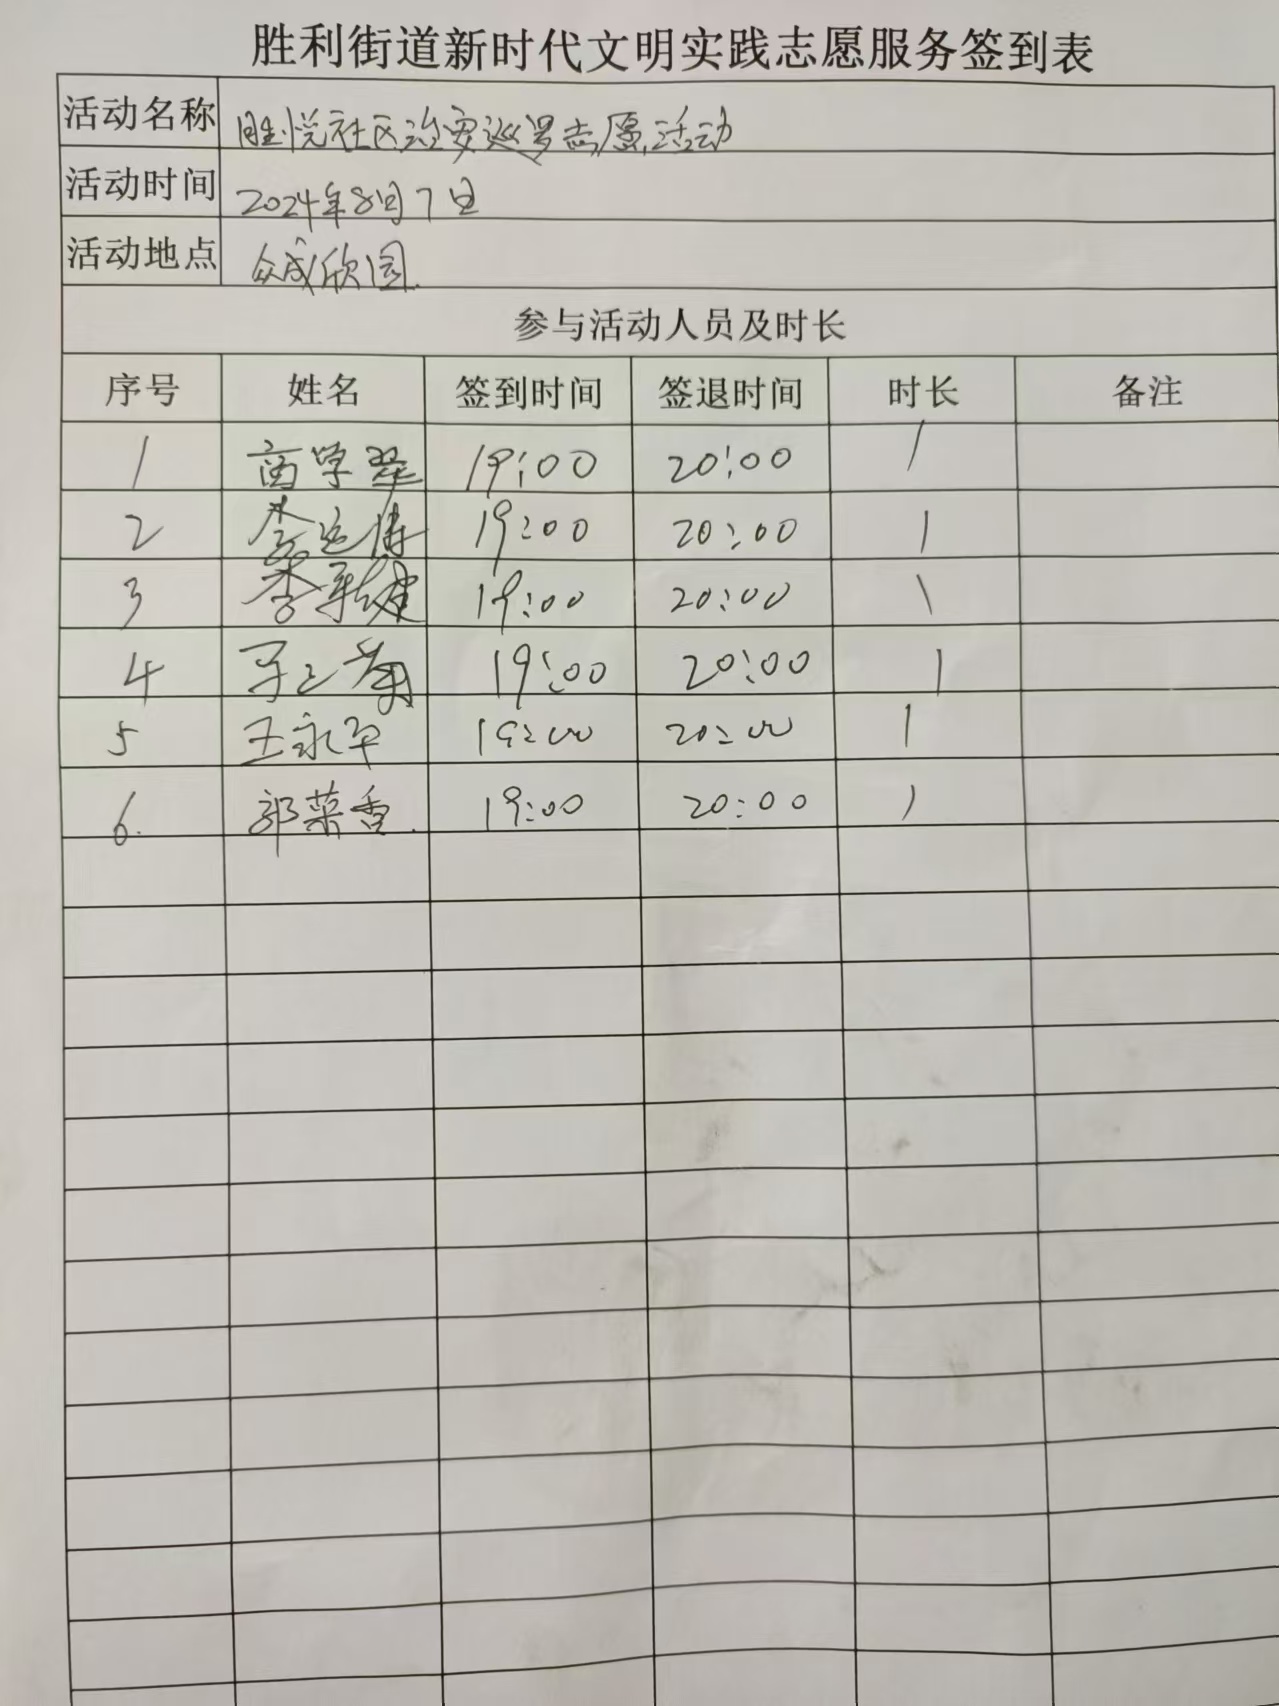 胜利街道新时代文明实践志愿服务签到表
活动名称 胜悦社区治安巡逻志愿活动
活动时间 2024年8月7日
活动地点 众成欣园
参与活动人员及时长
序号 姓名 签到时间 签退时间 时长 备注
1 商学翠 19:00 20:00 1
2 李 19:00 20:00 1
3 李 19:00 20:00 1
4 19:00 20:00 1
5 王永平 19:00 20:00 1
6. 郭菜香. 19:00 20:00 1